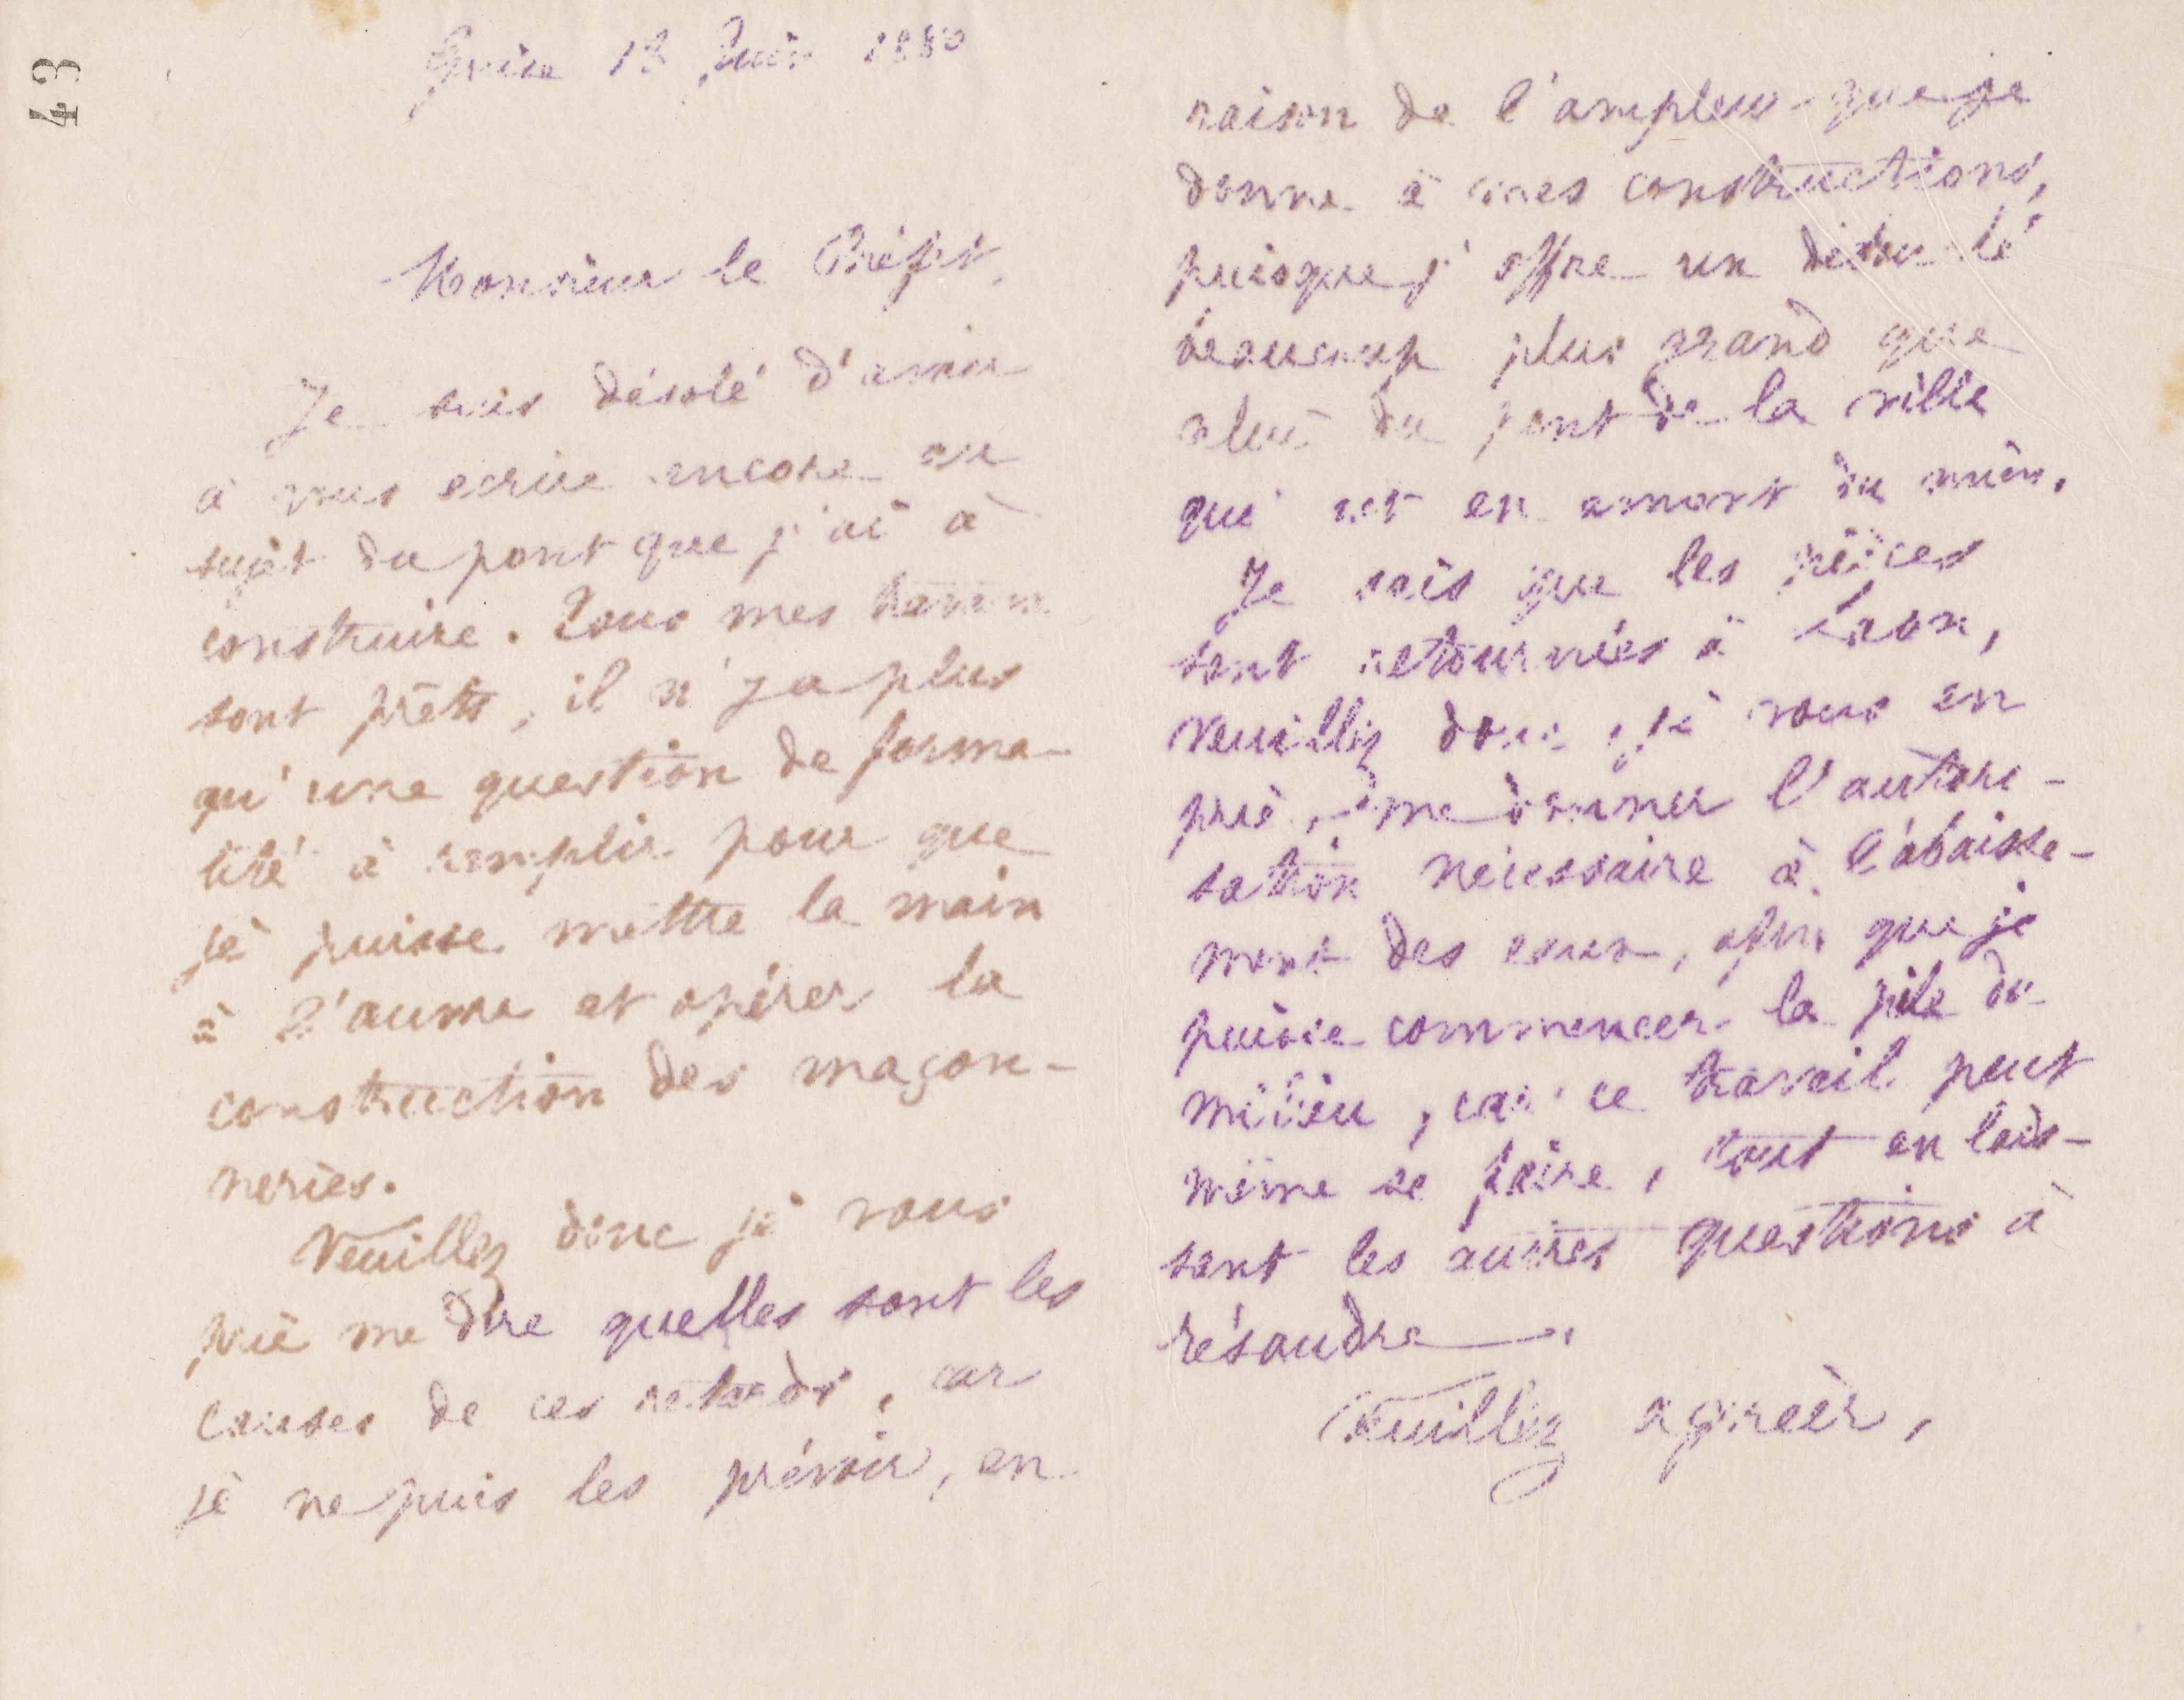 43
Guise 13 Juin 1880
Monsieur le Préfet,
Je suis désolé d'avoir
à vous écrire encore au
sujet du pont que j'ai à
construire. Tous mes travaux
sont prêts, il n'y a plus
qu'une question de forma-
lité à remplir pour que
je puisse mettre la main
à l'œuvre et opérer la
construction des maçon-
neries.
Veuillez donc je vous
prie me dire quelles sont les
causes de ces retards, car
je ne puis les prévoir, en
raison de l'ampleur que je
donne à mes constructions,
puisque j'offre un débouché
beaucoup plus grand que
celui du pont de la ville
qui est en amont du mien.
Je sais que les pièces
sont retournées à Laon,
veuillez donc, je vous en
prie, me donner l'autori-
sation nécessaire à l'abaisse-
ment des eaux, afin que je
puisse commencer la pile du
milieu, car ce travail peut
même se faire, tout en lais-
sant les autres questions à
résoudre.
Veuillez agréer,